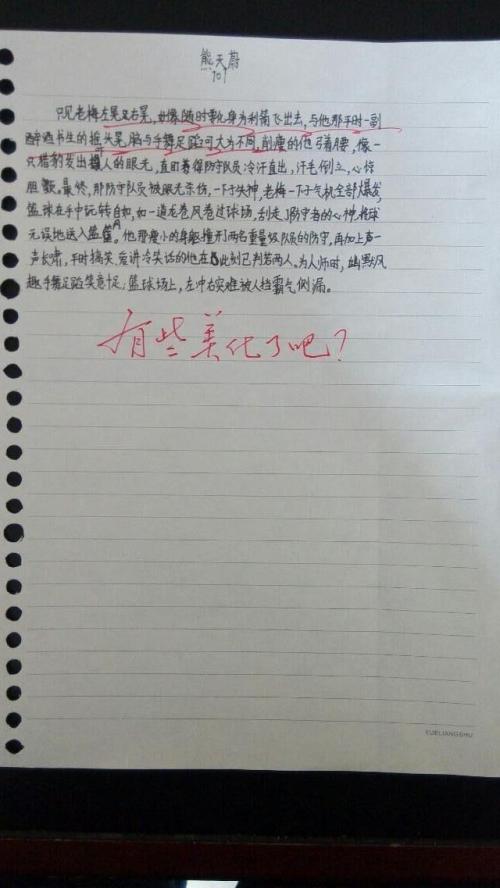 熊天蔚
701
只见老梅左晃又右晃,好像随时要化身为利箭飞出去,与他那平时一副
醉酒书生的摇头晃脑与手舞足蹈可大为不同,削瘦的他弓着腰,像一
只猎豹发出摄人的眼光,直盯着得防守队员冷汗直出,汗毛倒立,心惊
胆颤。最终,那防守队员被眼光杀伤,一下子失神,老梅一下子气机全部爆发,
篮球在手中玩转自如,如一道龙卷风卷过球场,刮走了防守者的心神,将球
无误地送入篮筐。他那瘦小的身躯撞开两名重量级队员的防守,再加上声一
声长啸,平时搞笑、爱讲冷笑话的他在此刻已判若两人。为人师时,幽默风
趣手舞足蹈笑意足;篮球场上,左冲右突难被人挡霸气侧漏。
有些美化了吧?
YUELIANGSHU